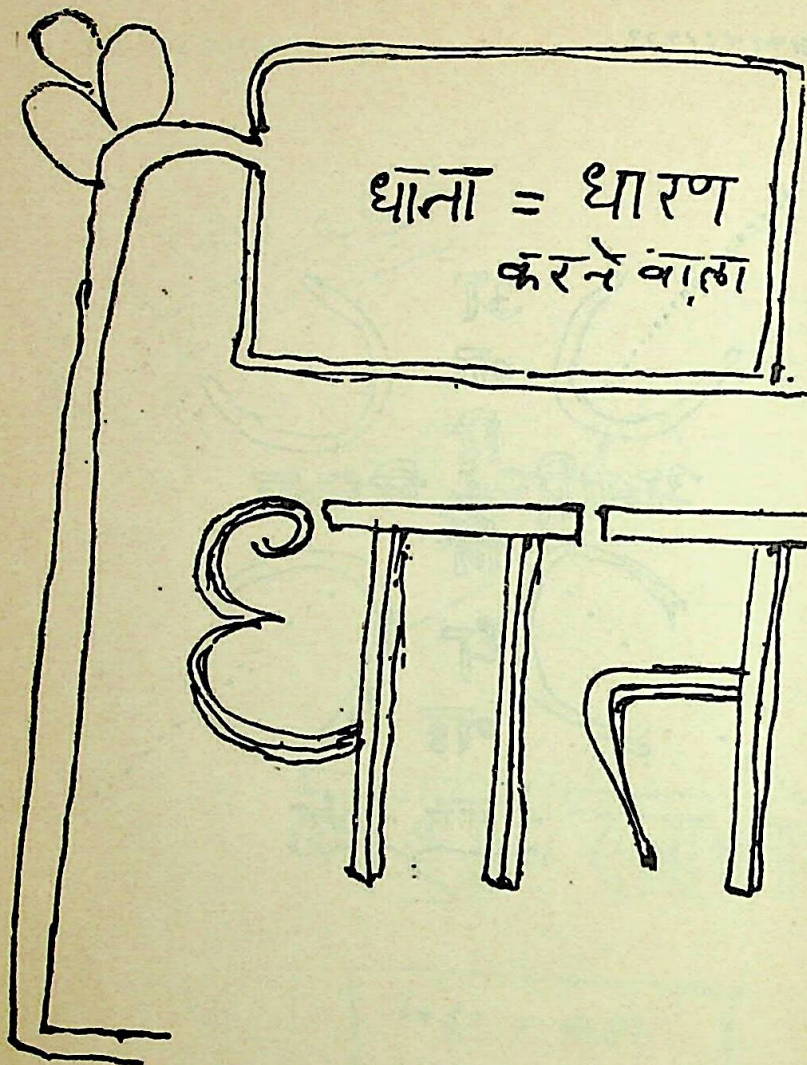 धाता = धारण
करने वाला
धात